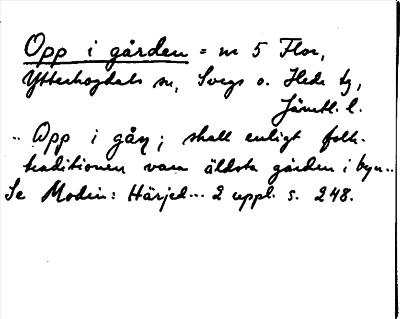 Opp i gården = nr 5 Flor,
Ytterhogdals sn, Svegs o. Hede tg,
Jämtl. l.
.. Opp i gåṇ; skall enligt folk-
traditionen vara äldsta gården i byn..
Se Modin: Härjed... 2 uppl. s. 248.